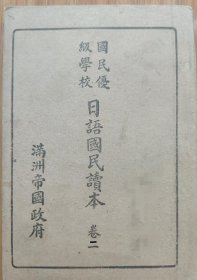 國民優
級學校
日語國民讀本 卷二
滿洲帝國政府